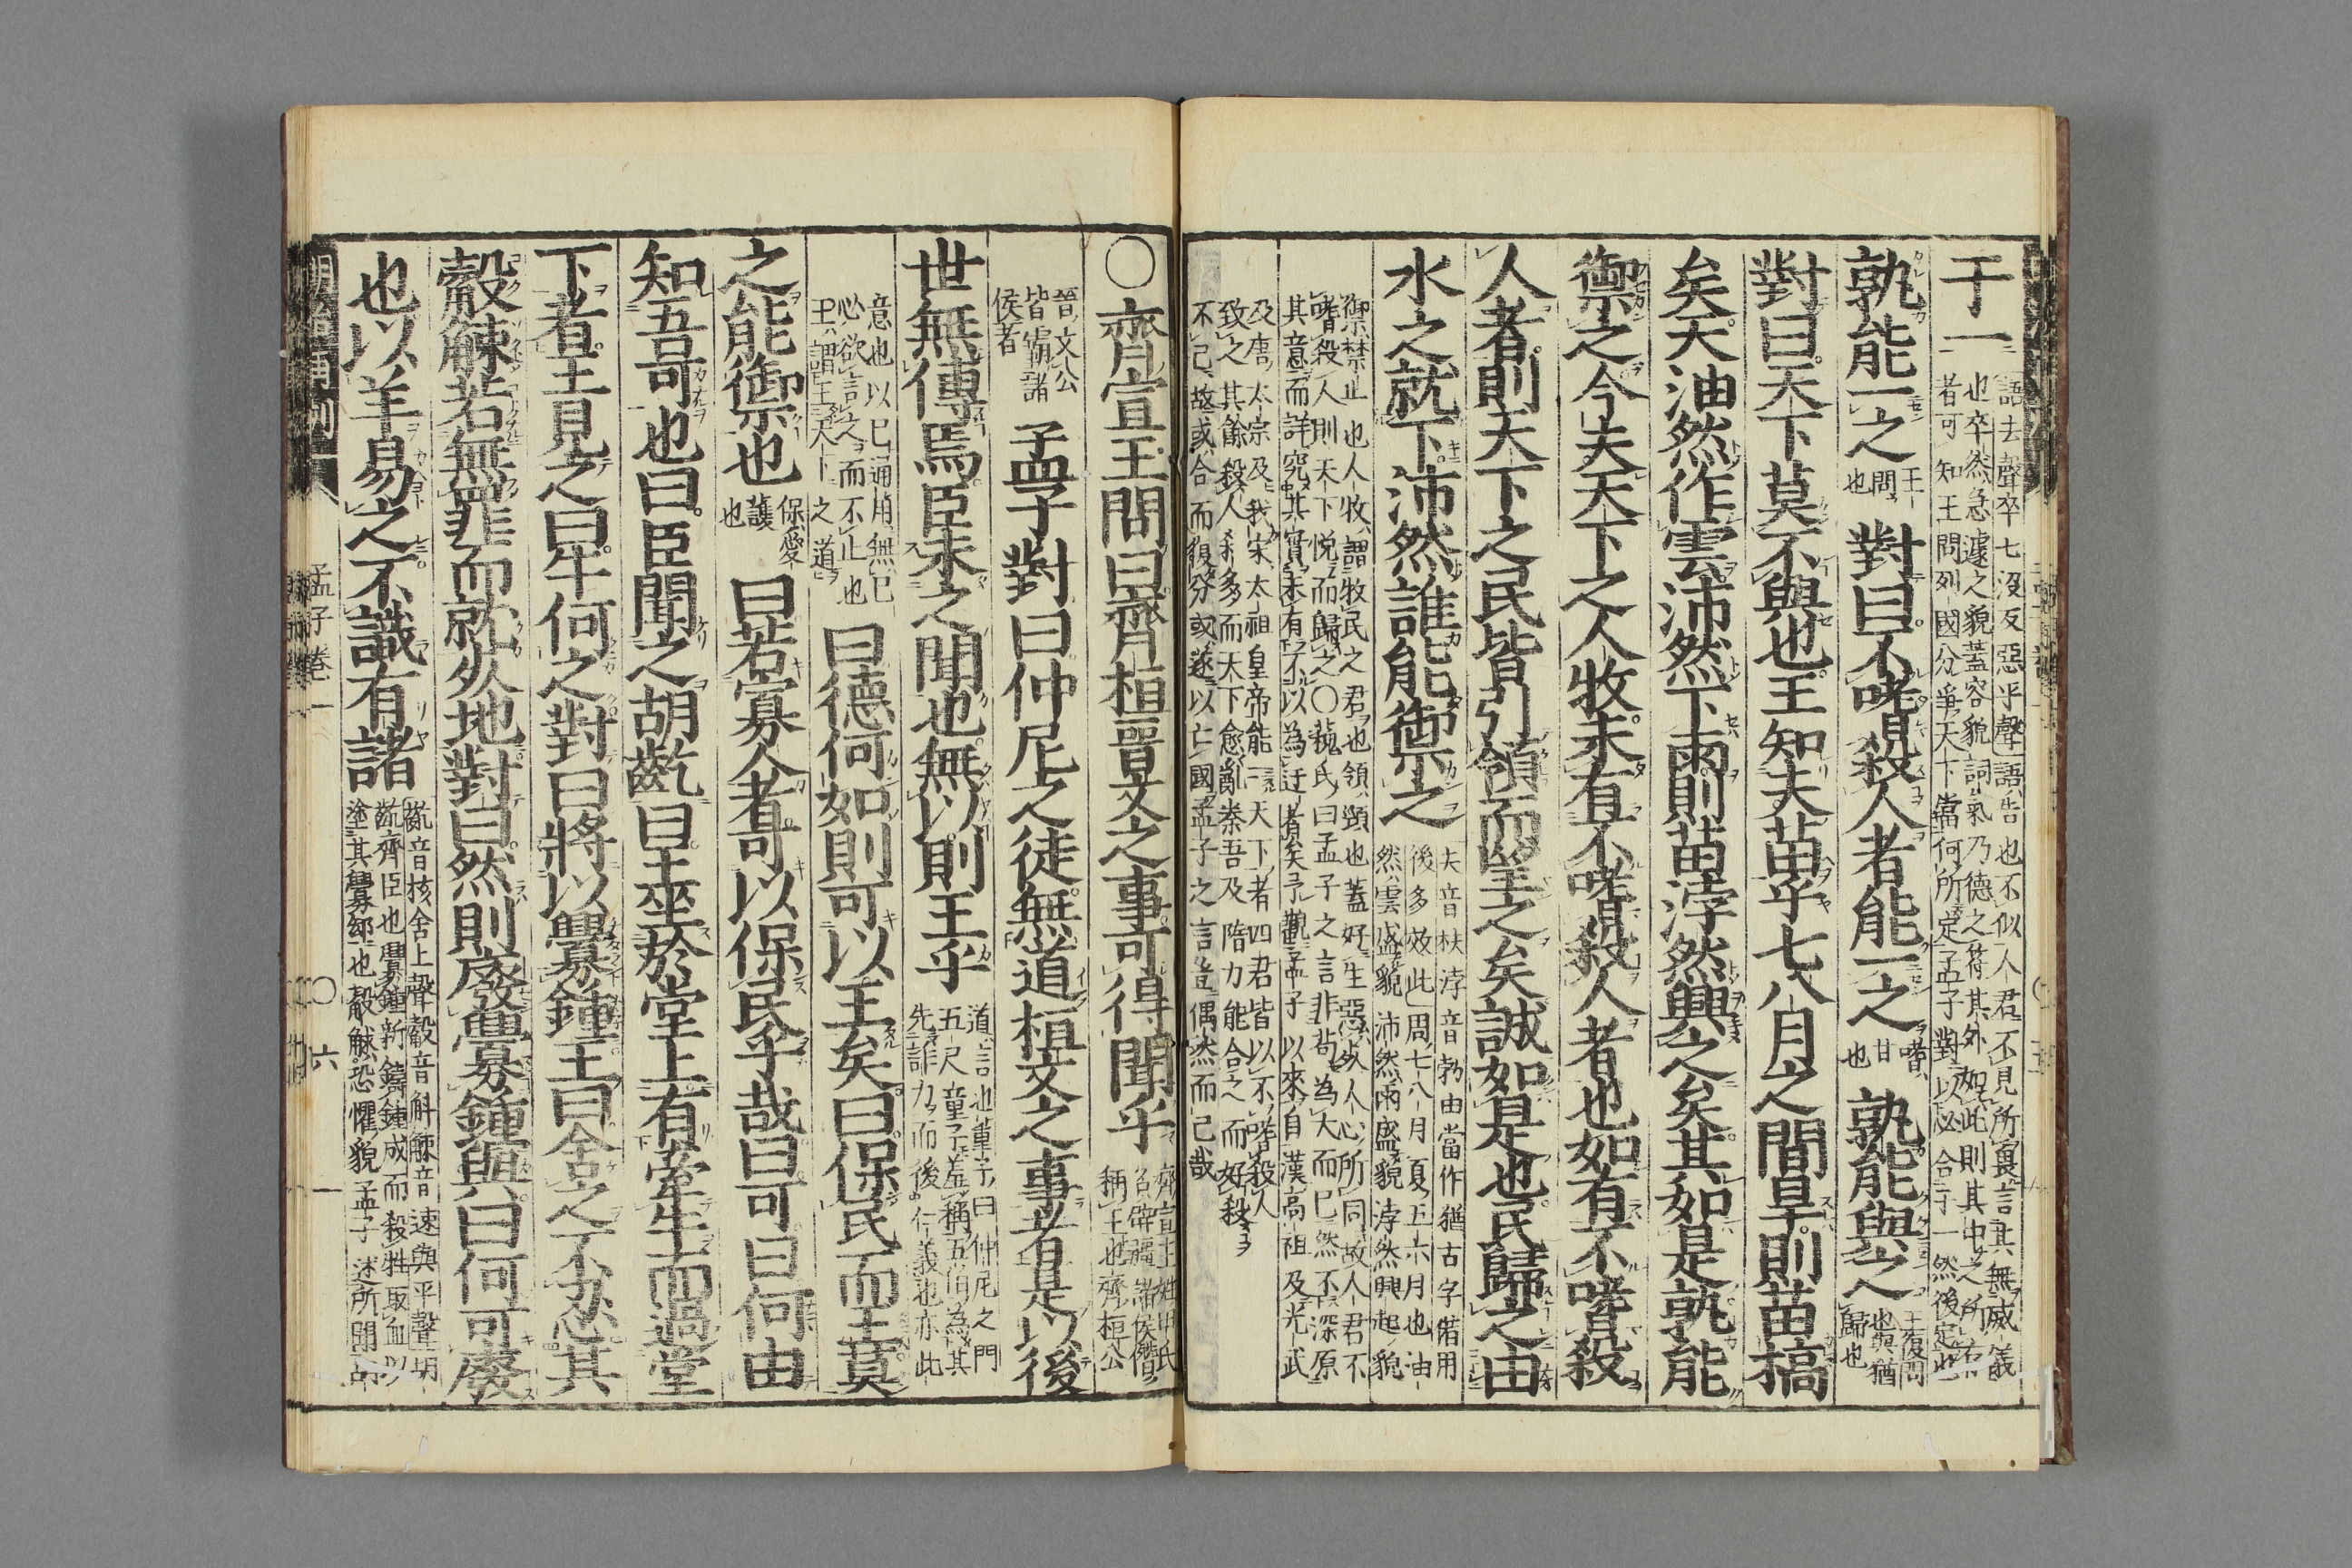 于一
語去聲卒七没反惡平聲語告也不似人君不見所畏言其無威儀
也卒然急遽之貌蓋容貌詞氣乃德之符其外如此則其中之所存
者可知王問列國分爭天下當何所定孟子對以必合于一然後定也
孰能一之王問也對曰不嗜殺人者能一之嗜甘也孰能與之王復問也與猶歸也
對曰天下莫不與也王知夫苗乎七八月之間旱則苗槁
矣天油然作雲沛然下雨則苗浡然興之矣其如是孰能
禦之今夫天下之人牧未有不嗜殺人者也如有不嗜殺
人者則天下之民皆引領而望之矣誠如是也民歸之由
水之就下沛然誰能禦之
夫音扶浡音勃由當作猶古字借用
後多放此周七八月夏五六月也油
然雲盛貌沛然雨盛貌浡然興起貌
禦禁止也人牧謂牧民之君也領頸也蓋好生惡死人心所同故人君不
嗜殺人則天下悅而歸之○蘇氏曰孟子之言非苟為大而已然不深原
其意而詳究其實未有不以為迂者矣予觀孟子以來自漢高祖及光武
及唐太宗及我宋太祖皇帝能一天下者四君皆以不嗜殺人
致之其餘殺人多而天下愈亂秦晉及隋力能合之而好殺
不已故或合而復分或遂以亡國孟子之言豈偶然而已哉
○齊宣王問曰齊桓晉文之事可得聞乎
齊宣王姓田氏
名辟疆諸侯僭
稱王也齊桓公
晉文公
皆霸諸
侯者
孟子對曰仲尼之徒無道桓文之事者是以後
世無傳焉臣未之聞也無以則王乎
道言也董子曰仲尼之門
五尺童子羞稱五伯為其
先詐力而後仁義也亦此
意也以已通用無已
必欲言之而不止也
王謂王天下之道
曰德何如則可以王矣曰保民而王莫
之能禦也保愛護也曰若寡人者可以保民乎哉曰可曰何由
知吾可也曰臣聞之胡齕曰王坐於堂上有牽牛而過堂
下者王見之曰牛何之對曰將以釁鐘王曰舍之不忍其
觳觫若無罪而就死地對曰然則廢釁鐘與曰何可廢
也以羊易之不識有諸
齕音核舍上聲觳音斛觫音速與平聲胡
齕齊臣也釁鐘新鑄鐘成而殺牲取血以
塗其釁郄也觳觫恐懼貌孟子述所聞胡
孟子卷一
○六